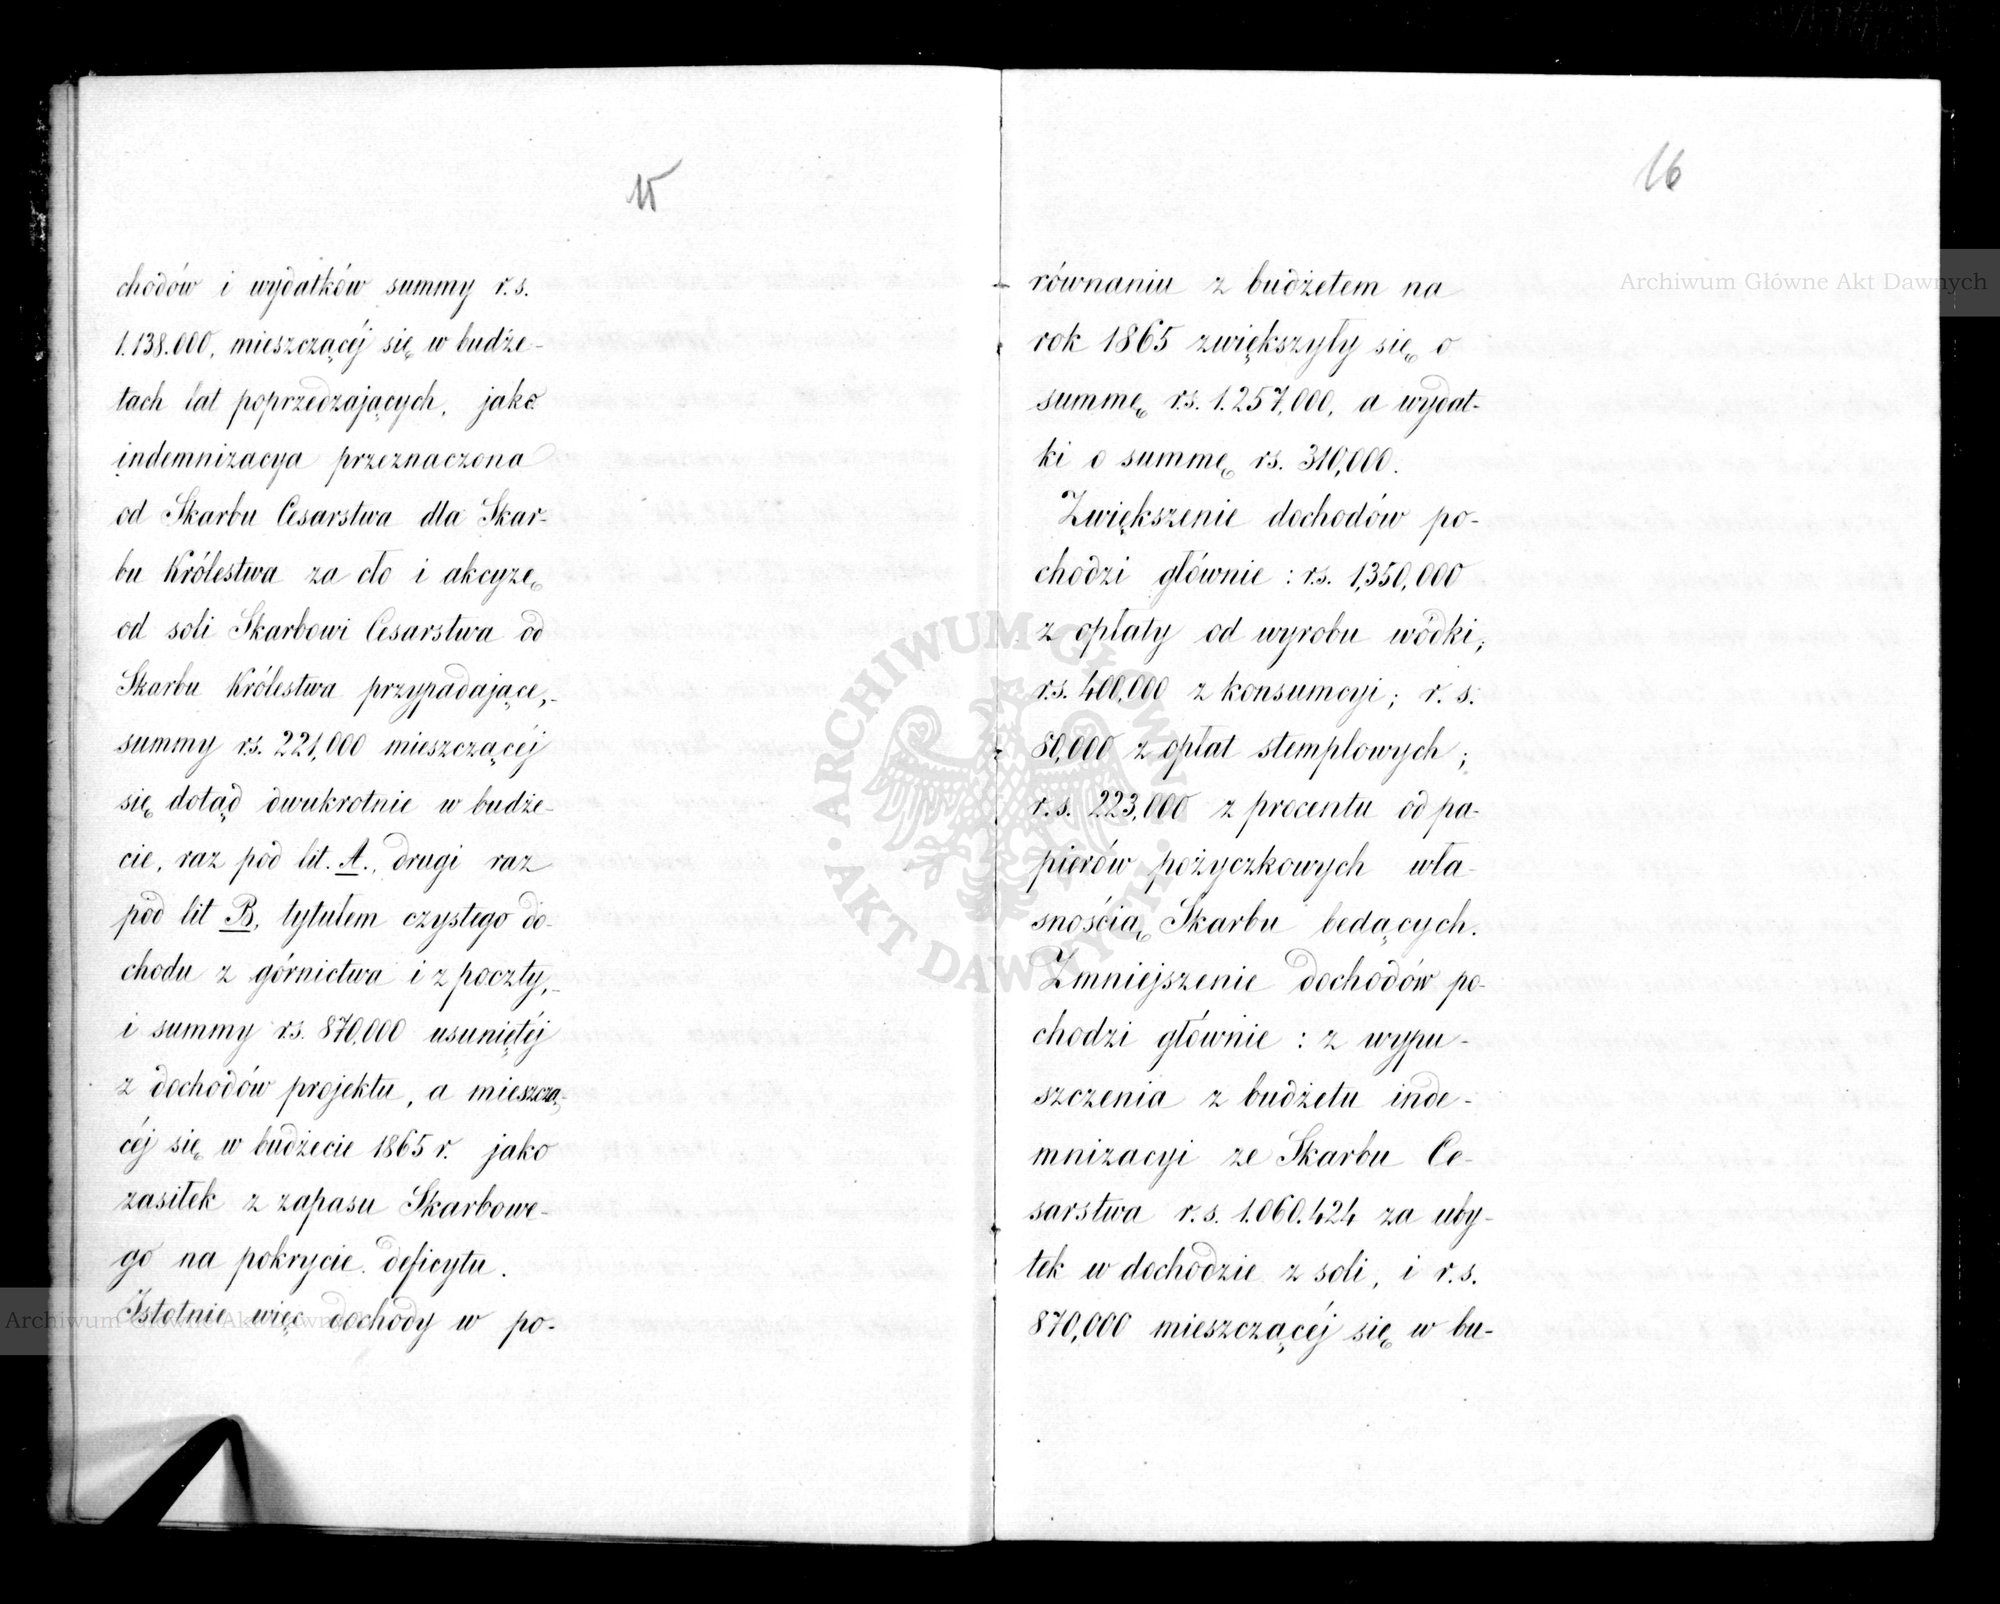 15
chodów i wydatków summy r.s.
1.138.000, mieszczącéj się w budże-
tach lat poprzedzających, jako
indemnizacya przeznaczona
od Skarbu Cesarstwa dla Skar-
bu Królestwa za cło i akcyzę
od soli Skarbowi Cesarstwa od
Skarbu Królestwa przypadające,-
summy rs. 221,000 mieszczącéj
się dotąd dwukrotnie w budże-
cie, raz pod lit. A., drugi raz
pod lit B, tytułem czystego do-
chodu z górnictwa i z poczty,-
i summy rs. 870,000 usuniętéj
z dochodów projektu, a mieszczą-
céj się w budżecie 1865 r. jako
zasiłek z zapasu Skarbowe-
go na pokrycie deficytu.
Istotnie więc dochody w po-
16
równaniu z budżetem na
rok 1865 zwiększyły się o
summę r.s. 1.257,000, a wydat-
ki o summę rs. 310,000.
Zwiększenie dochodów po-
chodzi głównie : r.s. 1,350,000
z opłaty od wyrobu wódki;
r.s. 400,000 z konsumcyi; r. s.
80,000 z opłat stemplowych;
r.s. 223,000 z procentu od pa-
pierów pożyczkowych wła-
snością Skarbu bedących.
Zmniejszenie dochodów po-
chodzi głównie : z wypu-
szczenia z budżetu inde-
mnizacyi ze Skarbu Ce-
sarstwa r.s. 1.060.424 za uby-
tek w dochodzie z soli, i r.s.
870,000 mieszczącéj się w bu-
Archiwum Główne Akt Dawnych
Archiwum Główne Akt Dawnych
ARCHIWUM GŁÓWNE
AKT DAWNYCH